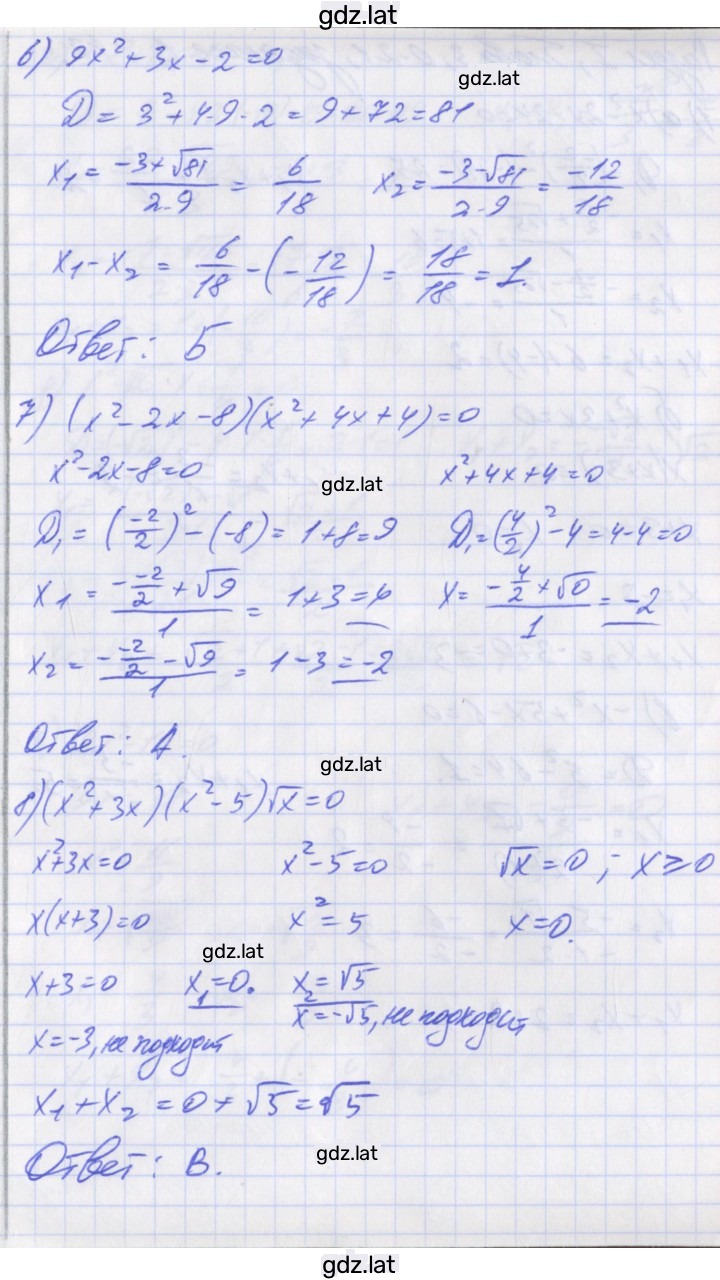 gdz.lat
6) 9x² + 3x - 2 = 0
gdz.lat
D = 3² + 4·9·2 = 9 + 72 = 81
x₁ = (-3+√81)/(2·9) = 6/18 x₂ = (-3-√81)/(2·9) = -12/18
x₁ - x₂ = 6/18 - (-12/18) = 18/18 = 1.
Ответ: Б
7) (x² - 2x - 8)(x² + 4x + 4) = 0
x² - 2x - 8 = 0 x² + 4x + 4 = 0
gdz.lat
D₁ = (-2/2)² - (-8) = 1 + 8 = 9 D₁ = (4/2)² - 4 = 4 - 4 = 0
x₁ = (- -2/2 + √9)/1 = 1 + 3 = 4 x = (- 4/2 + √0)/1 = -2
x₂ = (- -2/2 - √9)/1 = 1 - 3 = -2
Ответ: А.
gdz.lat
8) (x² + 3x)(x² - 5)√x = 0
x² + 3x = 0 x² - 5 = 0 √x = 0; x ≥ 0
x(x + 3) = 0 x² = 5 x = 0.
gdz.lat
x + 3 = 0 x₁ = 0. x₂ = √5
x = -3, не подходит x = -√5, не подходит
x₁ + x₂ = 0 + √5 = √5
Ответ: В.
gdz.lat
gdz.lat